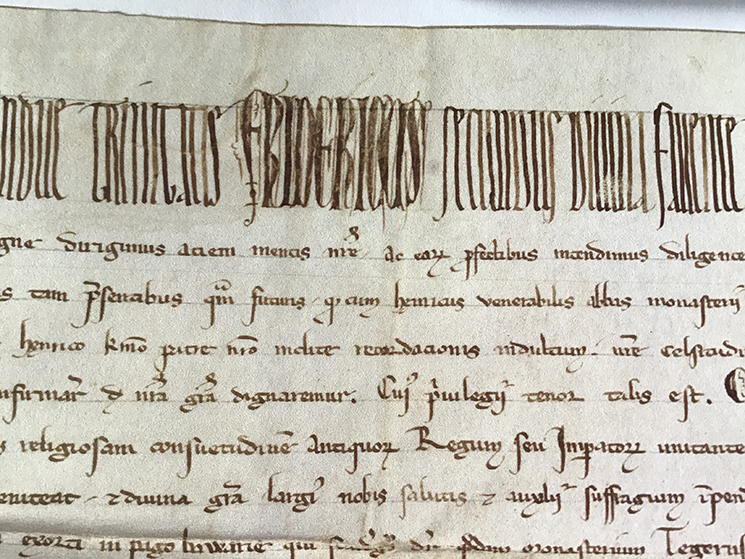 indiue trinitatis FRIDERICUS secundus diuina fauente
gne dirigimus aciem mentis nr̄e ac eoꝝ ꝓfectibus intendimus diligence
s tam p̄sentibus qm̄ futuris q cum heinricus venerabilis abbas monasterii
henrico kmō patre nr̄o inclite recordacionis indultum. ur̄e celsitudi
nfirmar̄ ⁊ nr̄a gr̄a dignaremur. Cuiꝰ p̄uilegij tenor talis est.
s religiosam consuetudinē antiquoꝝ Regum seu Imꝑatoꝝ imitante
eniteat ⁊ diuina gr̄a largiꝰ nobis salutis ⁊ auxilij suffragium
exorti in pago monasterium Tegerns